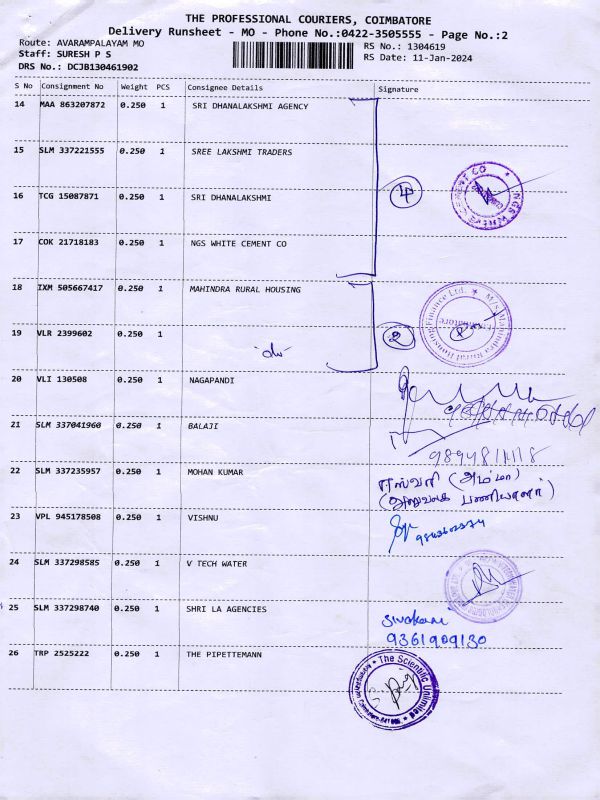 THE PROFESSIONAL COURIERS, COIMBATORE
Delivery Runsheet - MO - Phone No.:0422-3505555 - Page No.:2
Route: AVARAMPALAYAM MO
RS No.: 1304619
Staff: SURESH P S
RS Date: 11-Jan-2024
DRS No.: DCJB130461902
S No Consignment No Weight PCS Consignee Details Signature
14 MAA 863207872 0.250 1 SRI DHANALAKSHMI AGENCY
15 SLM 337221555 0.250 1 SREE LAKSHMI TRADERS
16 TCG 15087871 0.250 1 SRI DHANALAKSHMI
4
NGS WHITE CEMENT CO
17 COK 21718183 0.250 1 NGS WHITE CEMENT CO
18 IXM 505667417 0.250 1 MAHINDRA RURAL HOUSING
M/s. Mahindra Rural Housing Finance Ltd.
19 VLR 2399602 0.250 1
2
20 VLI 130508 0.250 1 NAGAPANDI
21 SLM 337041960 0.250 1 BALAJI
22 SLM 337235957 0.250 1 MOHAN KUMAR
ஈஸ்வரி (அம்மா)
23 VPL 945178508 0.250 1 VISHNU
24 SLM 337298585 0.250 1 V TECH WATER
25 SLM 337298740 0.250 1 SHRI LA AGENCIES
Sivakami
9361909130
26 TRP 2525222 0.250 1 THE PIPETTEMANN
The Scientific Unlimited